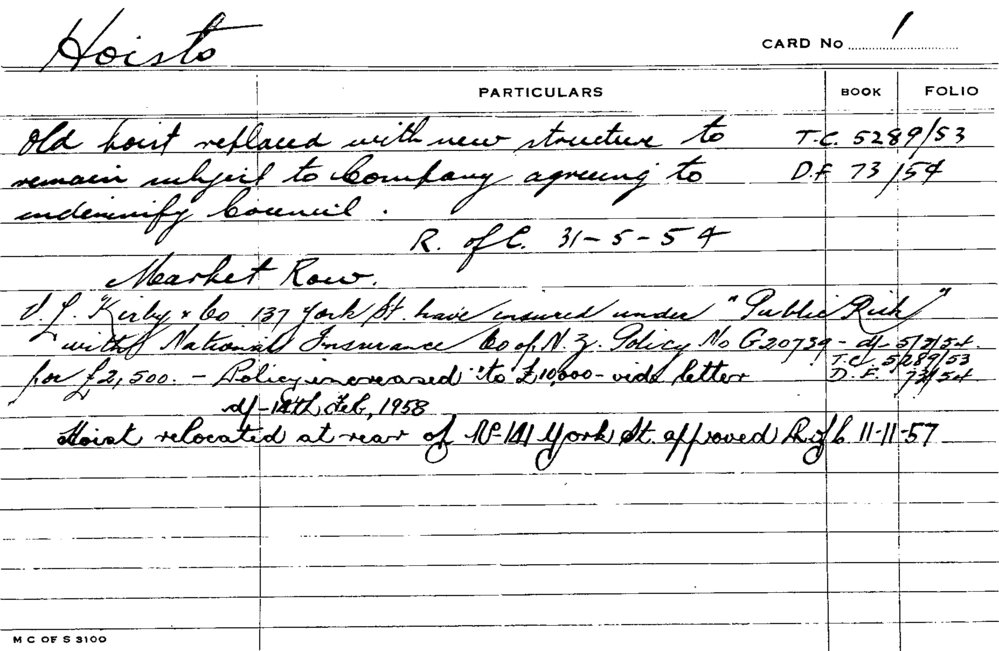 Hoists
CARD No 1
PARTICULARS BOOK FOLIO
Old hoist replaced with new structure to T.C. 5289/53
remain subject to Company agreeing to D.F. 73/54
indemnify Council.
R. of C. 31-5-54
Market Row.
Kirby & Co 137 York St. have insured under "Public Risk"
with National Insurance Co of N.Z. Policy No G20739 - d/- 5/2/54.
T.C. 5289/53
for £2,500. - Policy increased to £10,000 - vide letter D.F. 73/54
d/- 14th Feb, 1958
Hoist relocated at rear of No 141 York St. approved R of C 11-11-57
M C OF S 3100